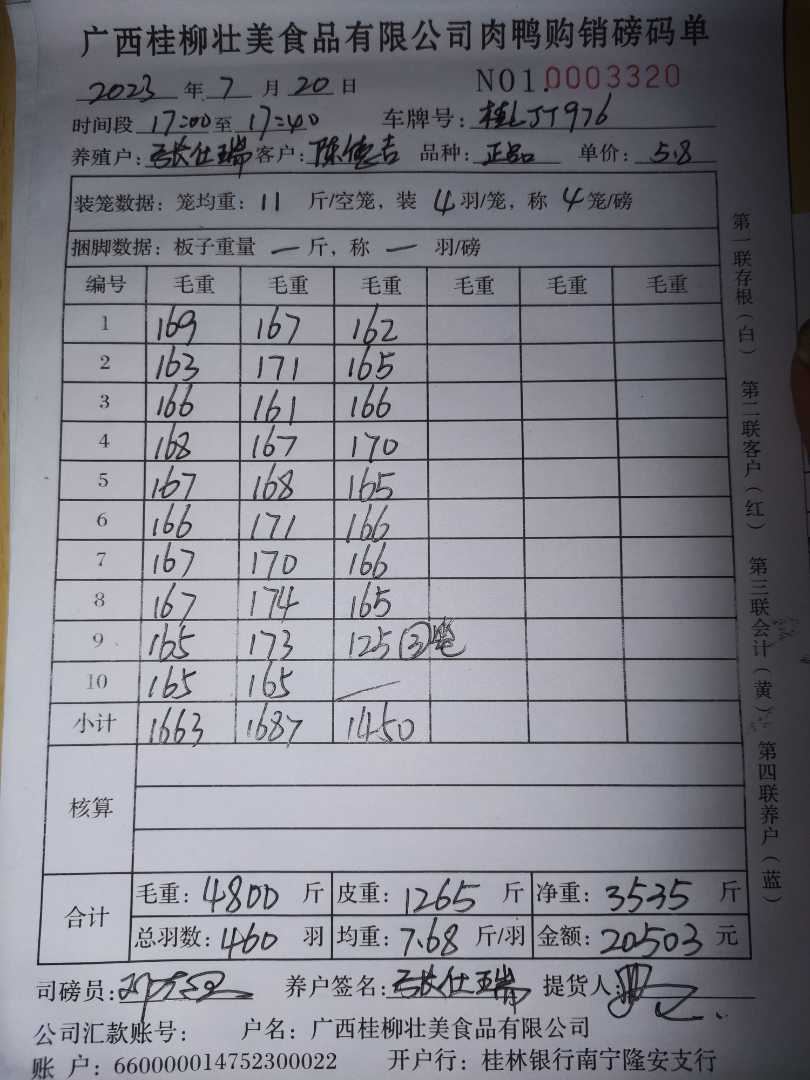 广西桂柳壮美食品有限公司肉鸭购销磅码单
2023 年 7 月 20 日 NO1.0003320
时间段 17:00 至 17:40 车牌号: 桂LJT976
养殖户: 张仕瑞 客户: 陈德吉 品种: 正品 单价: 5.8
装笼数据: 笼均重: 11 斤/空笼, 装 4 羽/笼, 称 4 笼/磅
捆脚数据: 板子重量 一 斤, 称 一 羽/磅
编号 毛重 毛重 毛重 毛重 毛重 毛重
1 169 167 162
2 163 171 165
3 166 161 166
4 168 167 170
5 167 168 165
6 166 171 166
7 167 170 166
8 167 174 165
9 165 173 125 ③笼
10 165 165 —
小计 1663 1687 1450
核算
合计 毛重: 4800 斤 皮重: 1265 斤 净重: 3535 斤
总羽数: 460 羽 均重: 7.68 斤/羽 金额: 20503 元
司磅员: 养户签名: 张仕瑞 提货人:
公司汇款账号: 户名: 广西桂柳壮美食品有限公司
账 户: 660000014752300022 开户行: 桂林银行南宁隆安支行
第一联存根(白) 第二联客户(红) 第三联会计(黄) 第四联养户(蓝)